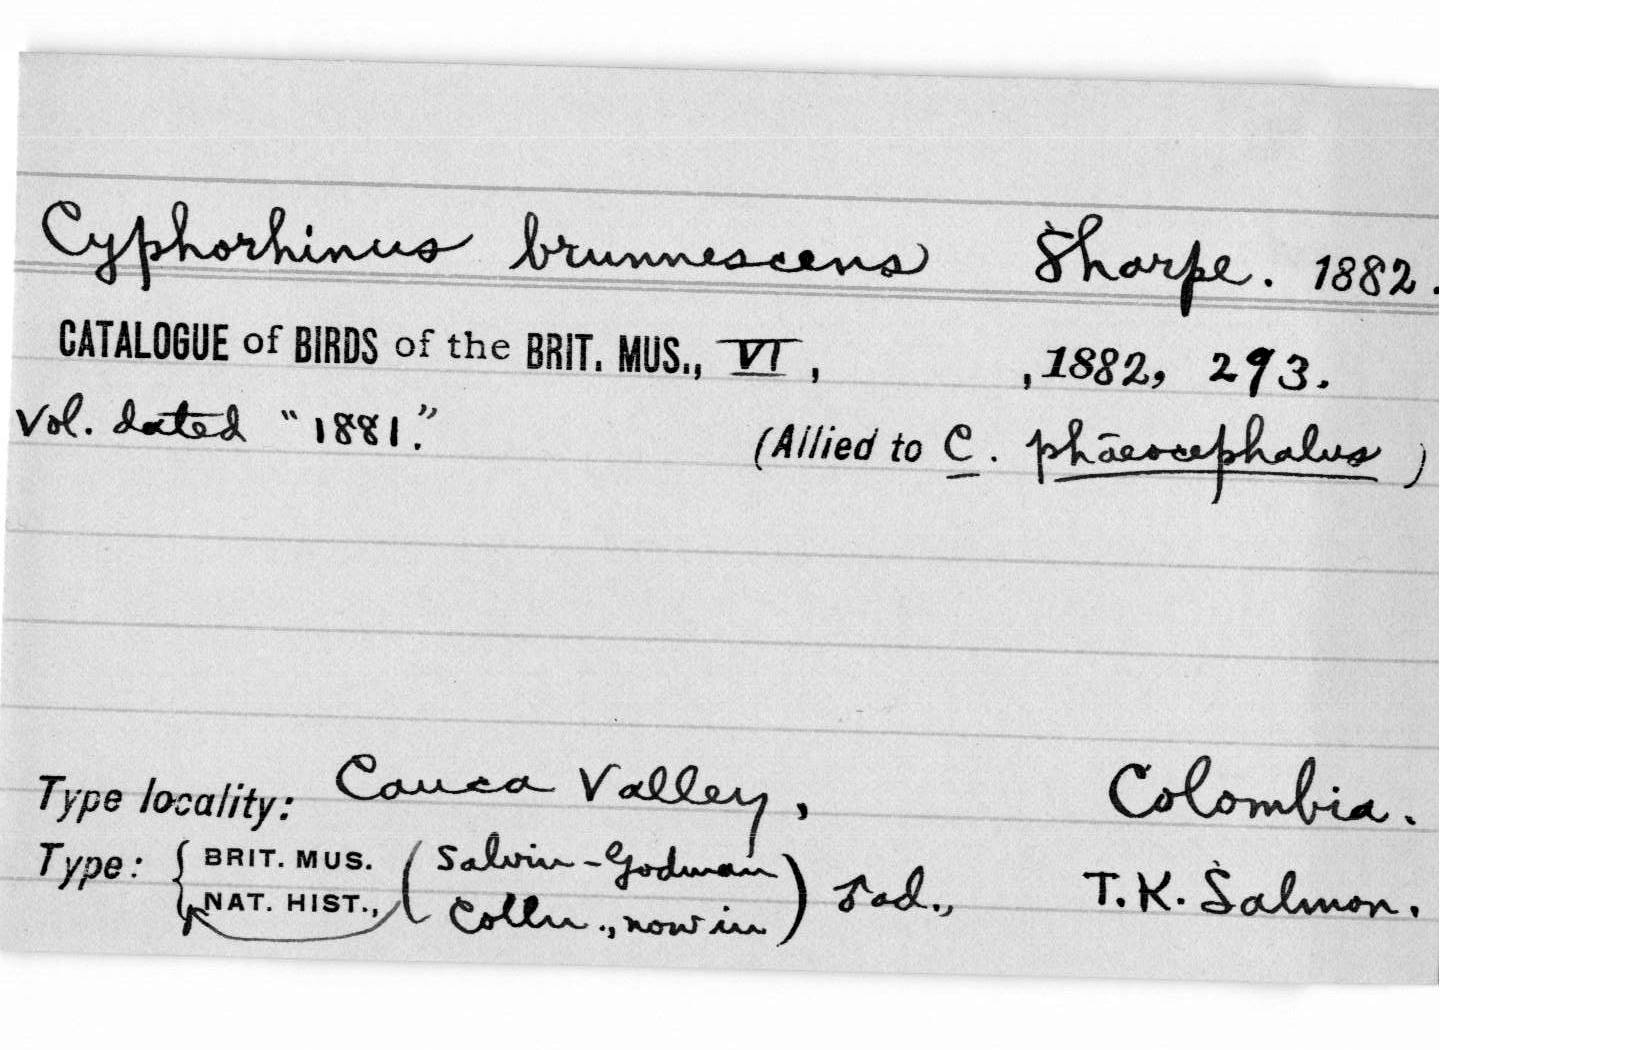 Cyphorhinus brunnescens Sharpe. 1882.
CATALOGUE of BIRDS of the BRIT. MUS., VI, , 1882, 293.
Vol. dated "1881." (Allied to C. phaeocephalus)
Type locality: Cauca Valley, Colombia.
Type: { BRIT. MUS. (Salvin-Godman
NAT. HIST., Colln., now in) ad., T.K. Salmon.